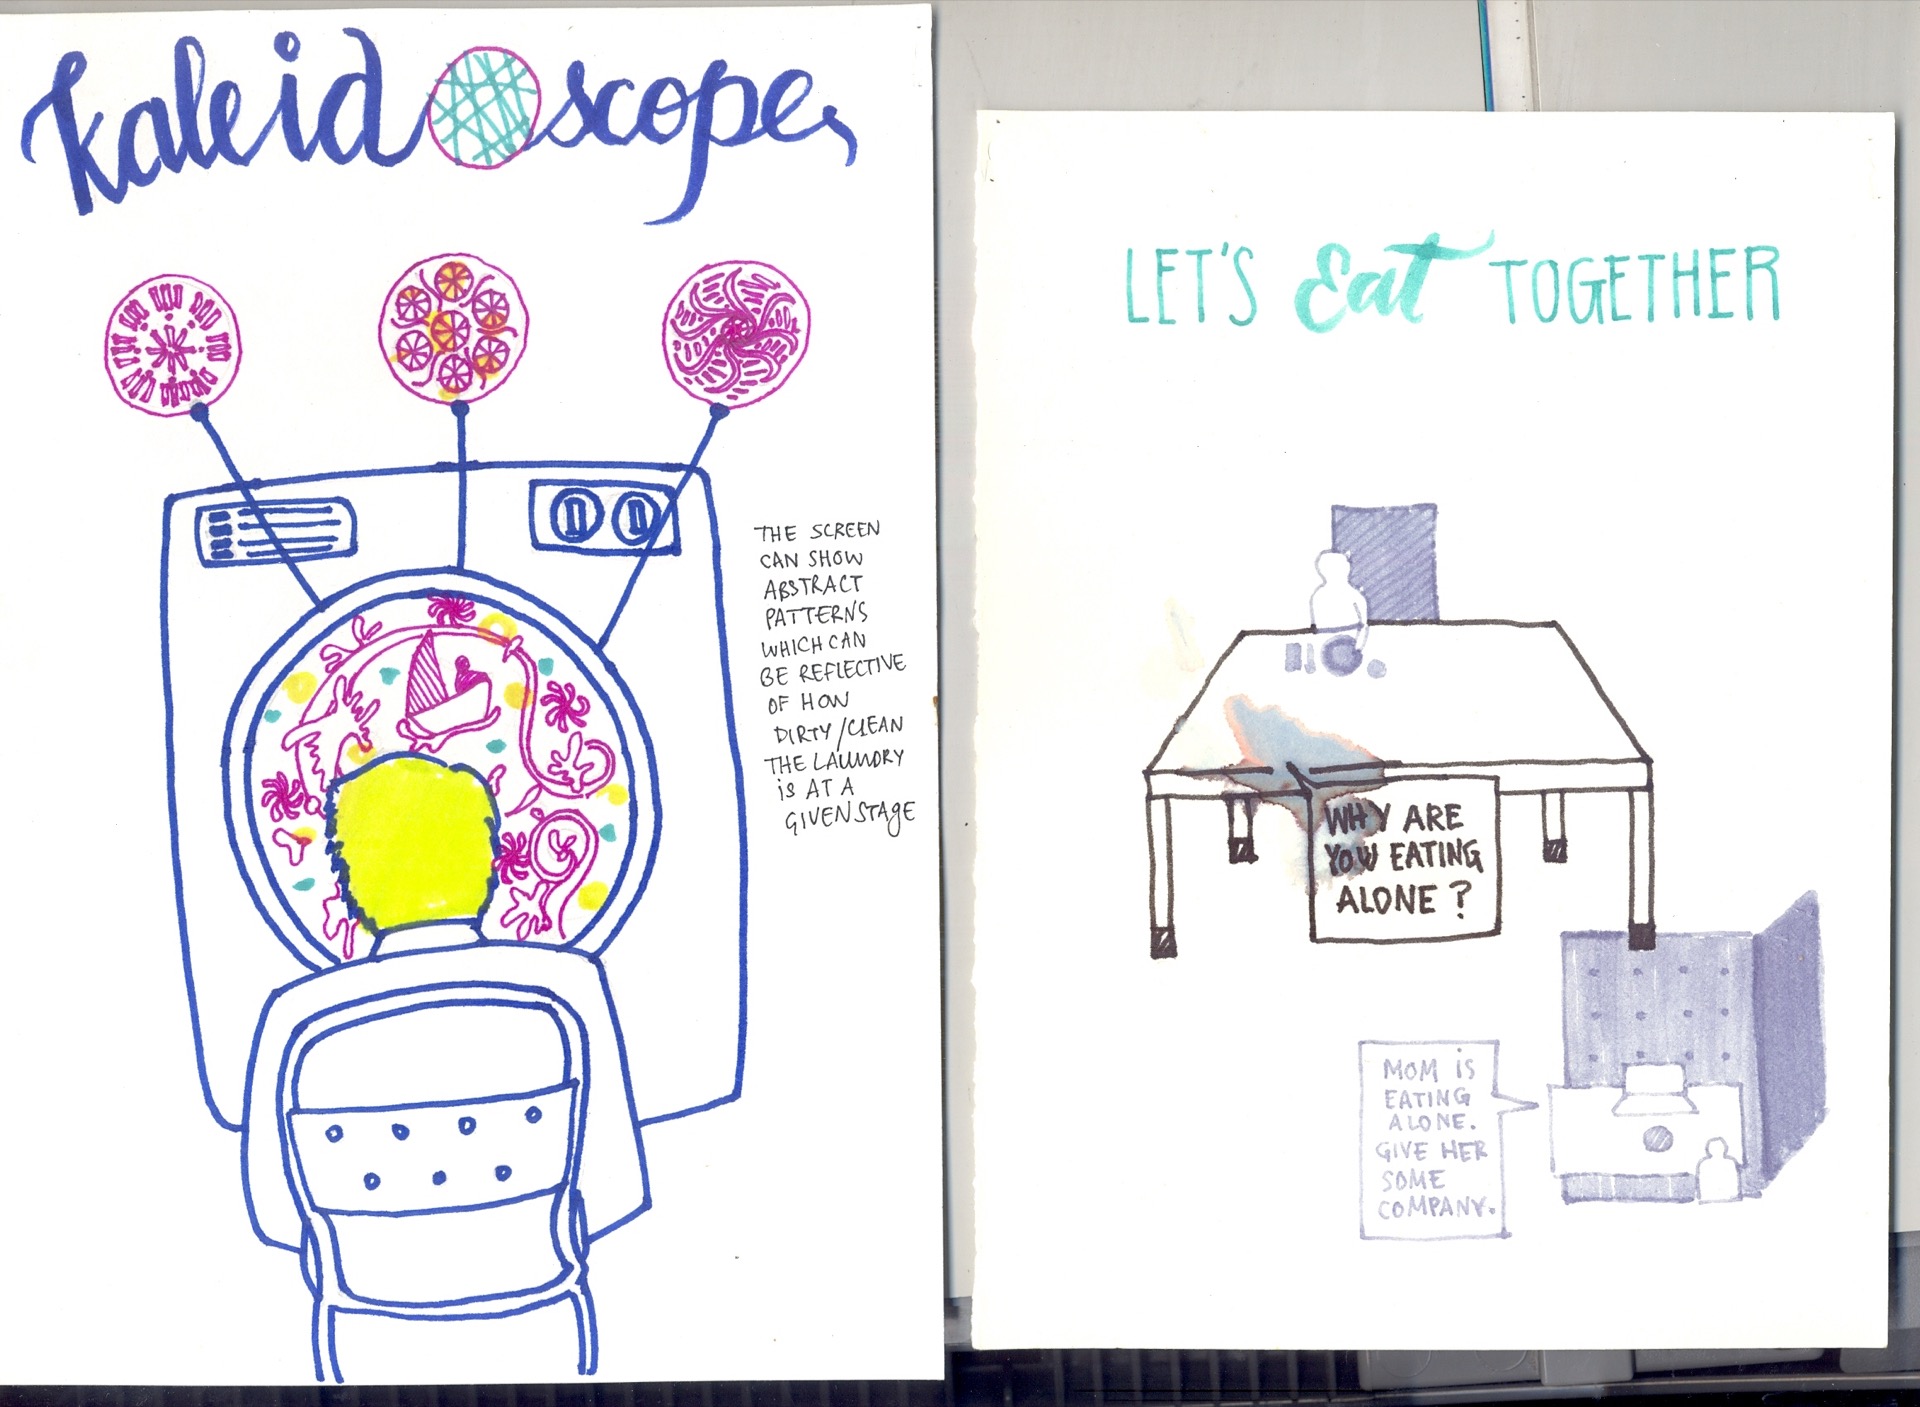 Kaleidoscope
THE SCREEN
CAN SHOW
ABSTRACT
PATTERNS
WHICH CAN
BE REFLECTIVE
OF HOW
DIRTY/CLEAN
THE LAUNDRY
iS AT A
GIVEN STAGE
LET'S Eat TOGETHER
WHY ARE
YOU EATING
ALONE?
MOM iS
EATING
ALONE.
GIVE HER
SOME
COMPANY.